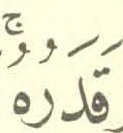 قَدَرُهُۚ